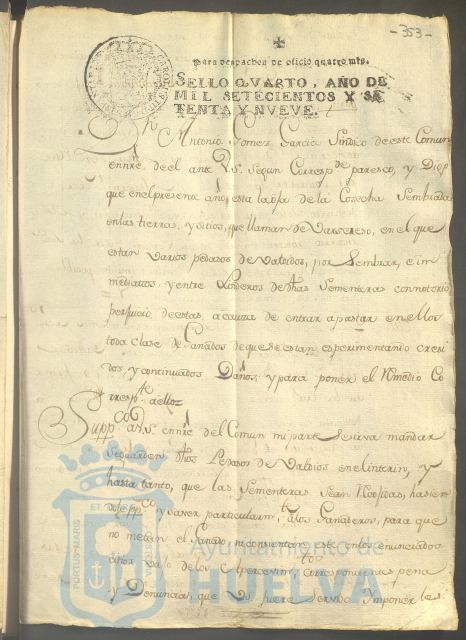 -353-
Para despachos de oficio quatro mrs.
SELLO QVARTO, AÑO DE
MIL SETECIENTOS Y SE
TENTA Y NVEVE.
Antonio Gomez Garcia Sindico de este Comun
en nre. de el ante V.S. segun Corresp.de paresco, y Digo
que en el presente año, esta la de la Cosecha Sembrada
en las tierras, y sitios, que llaman de en el que
estan varios pedasos de Valdios, por Sembrar, e in
mediatos, y entre Linderos de dhas Sementeras con notorio
perjuicio de estas, a causa de entrar a pastar en ellos
toda clase de Ganados de que se estan esperimentando cresi
dos, y continuados Daños; y para poner el Remedio Co
rresp.te a ello=
Supp.co a V.S. en nre. del Comun mi parte se sirva mandar
se guarden dhos Pedasos de Valdios en el interin, y
hasta tanto, que las Sementeras Sean
y saver particularm.te a los Ganaderos, para que
no metan el Ganado, ni consientan este en los enunciados
sitios vajo de los correspondientes pena
y Denuncia, que V.S. fuere servido Imponerles
PORTUS MARIS ET
Ayuntamiento de
HUELVA